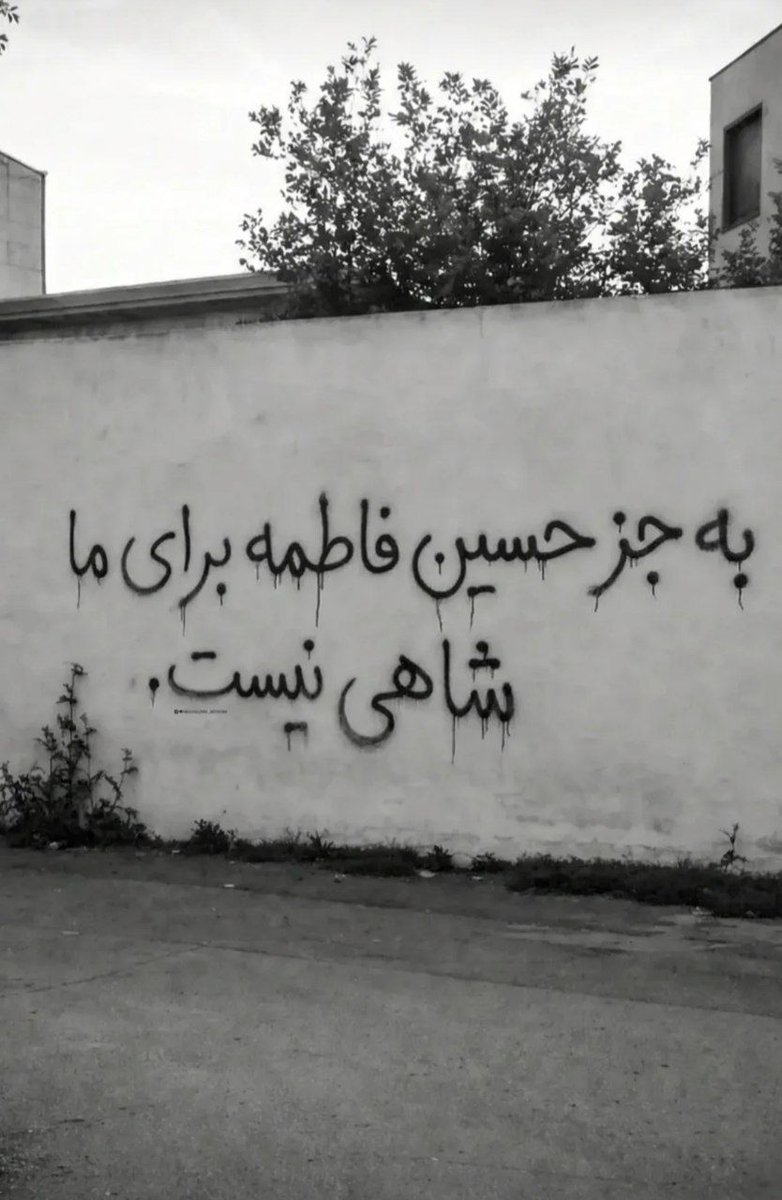 به جز حسین فاطمه برای ما
شاهی نیست.